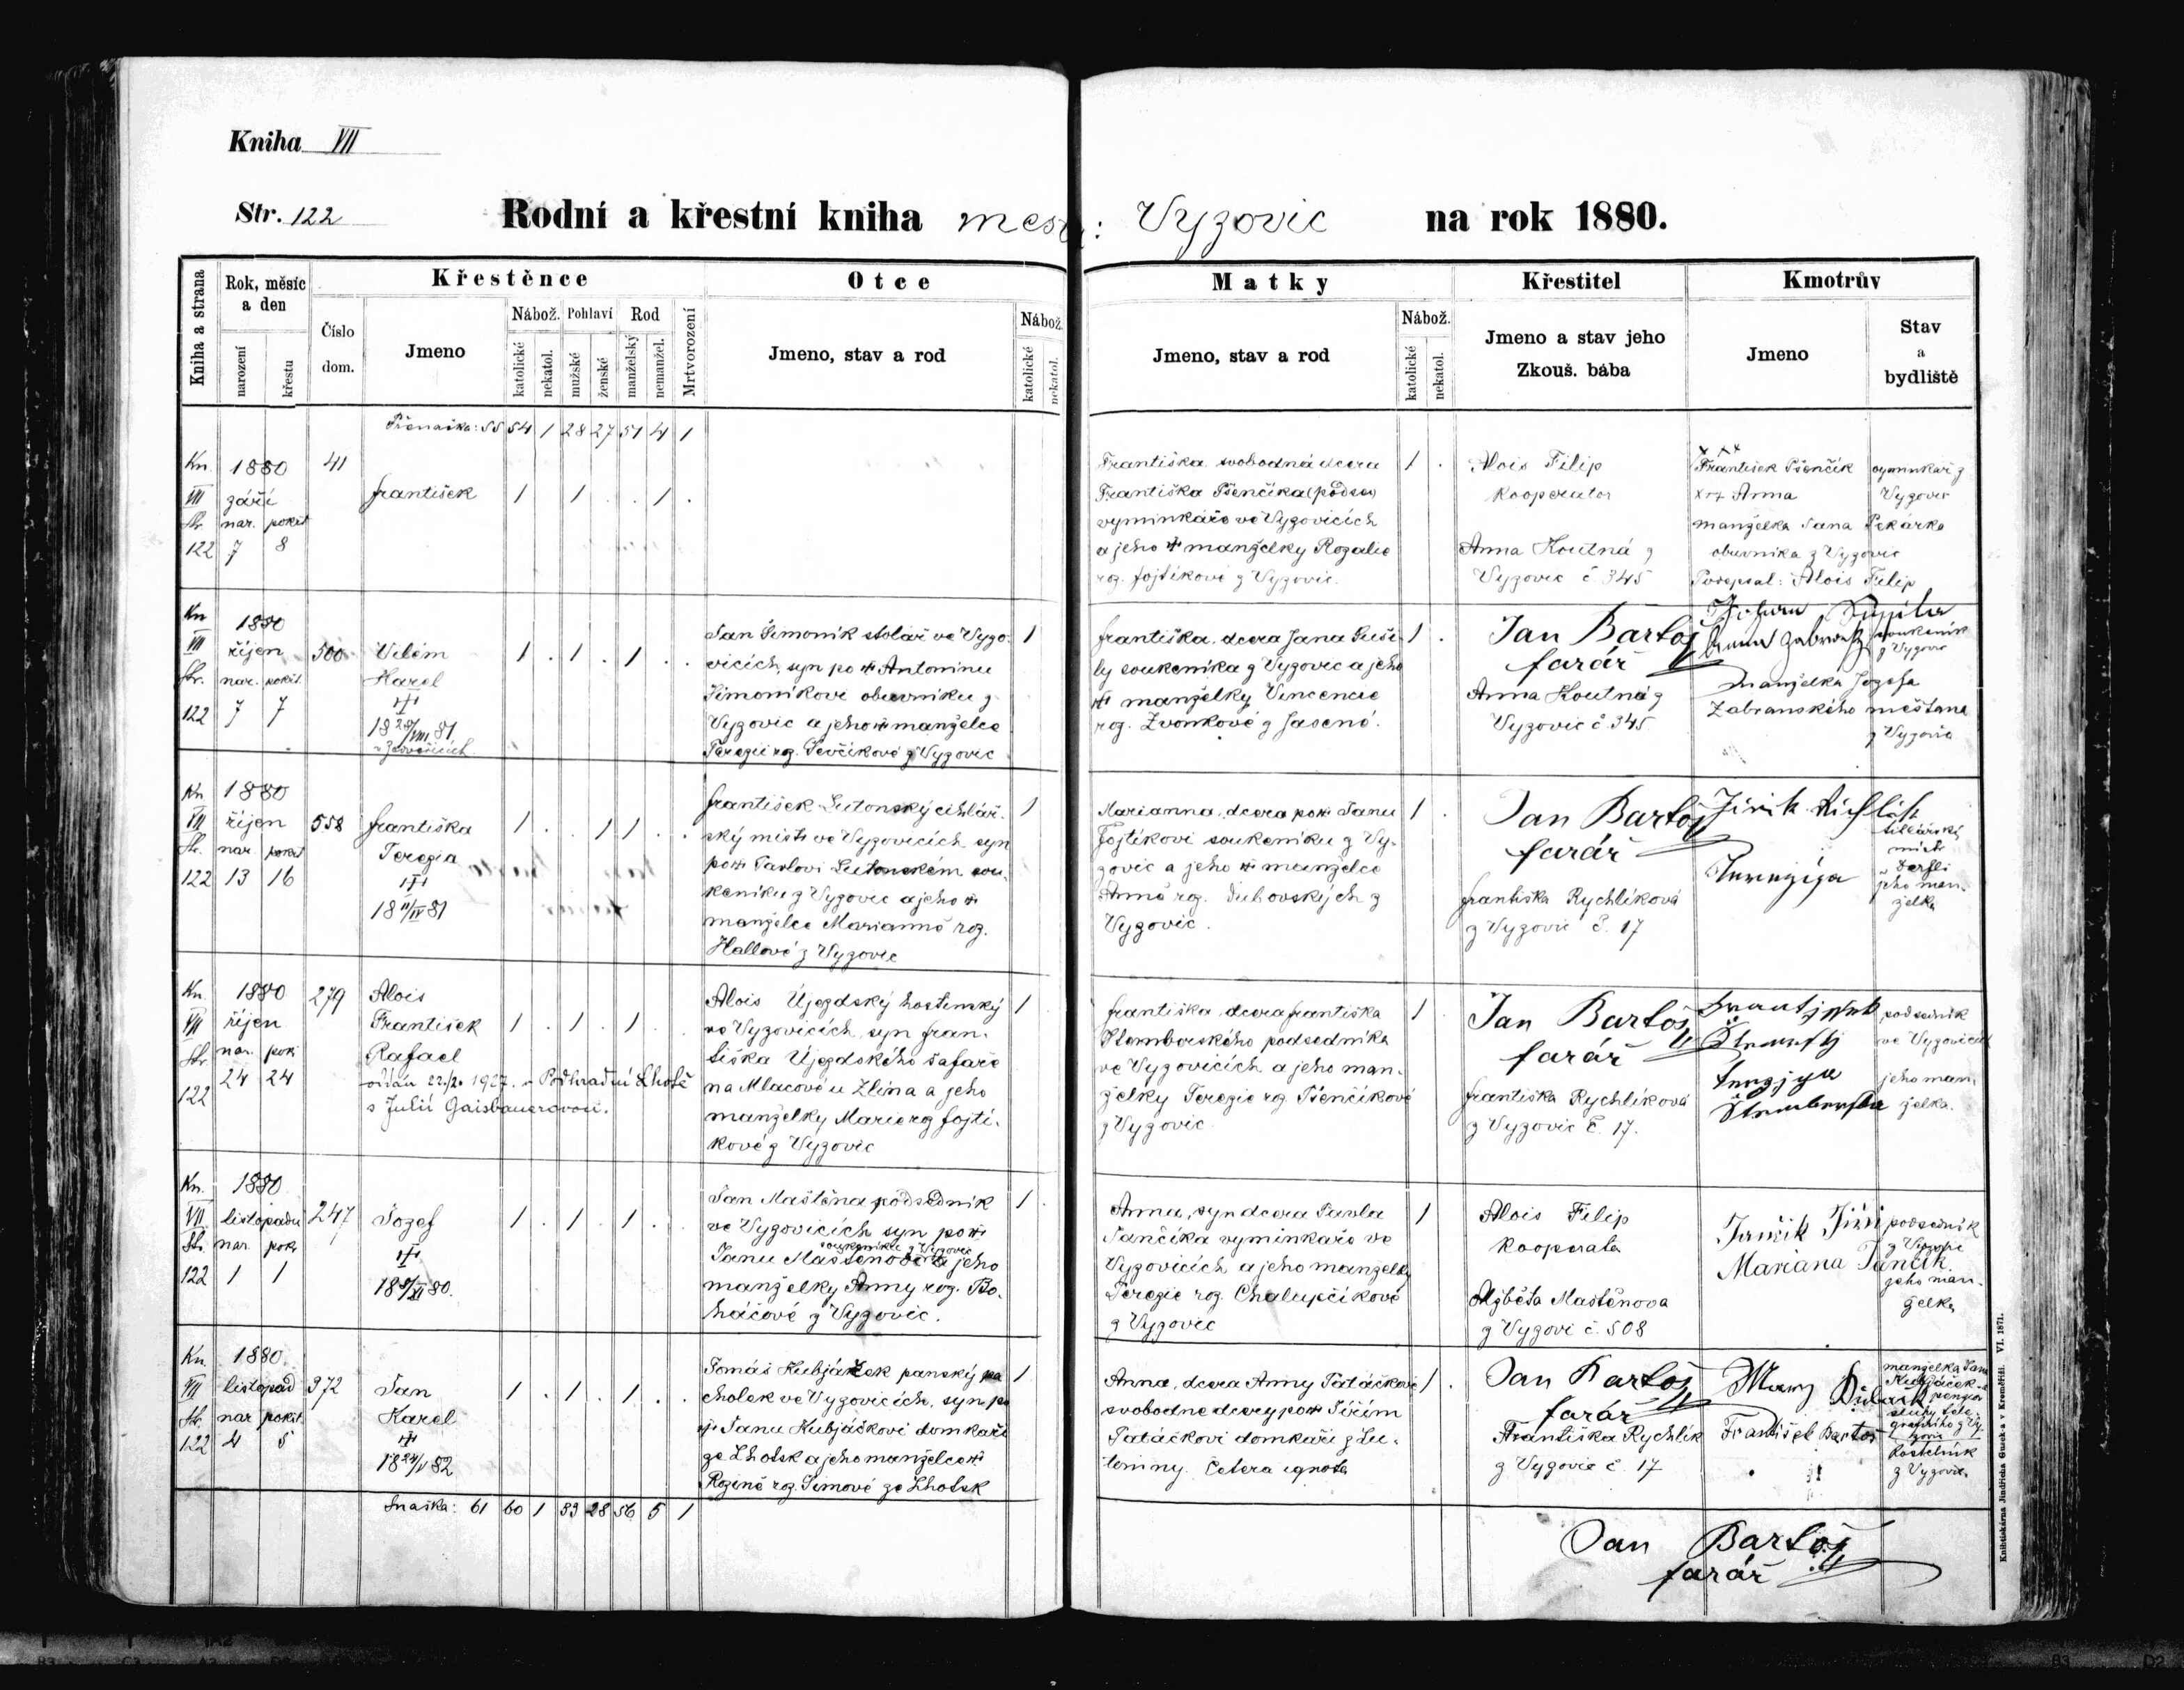 Kniha VII
Str. 122
Rodní a křestní kniha měst: Vyzovic na rok 1880.
Kniha a strana
Rok, měsíc a den
narození
křestu
Číslo dom.
Křestěnce
Jmeno
Nábož.
katolické
nekatol.
Pohlaví
mužské
ženské
Rod
manželský
nemanžel.
Mrtvorození
Otce
Jmeno, stav a rod
Nábož.
katolické
nekatol.
Matky
Jmeno, stav a rod
Nábož.
katolické
nekatol.
Křestitel
Jmeno a stav jeho
Zkouš. bába
Kmotrův
Jmeno
Stav a bydliště
Přenáška: 55 54 1 28 27 51 4 1
Kn. VII Str. 122
1880
září
nar. pokřt
7 8
41
František
1 1 1
Františka svobodná dcera
Františka Pšenčíka (podsed)
vyminkáře ve Vyzovicích
a jeho manželky Rozalie
roz. Fojtíkové z Vyzovic.
1
Alois Filip
Kooperator
Anna Koutná z
Vyzovic č 345
xxx
František Pšenčík vyminkář z
Vyzovic
xxx Anna
manželka Jana Pekárka
obuvníka z Vyzovic
Podepsal: Alois Filip
Kn VII Str. 122
1880
říjen
nar. pokřt.
7 7
500
Vilém
Karel
18 28/VIII 81
1 1 1
Jan Šimoník stolař ve Vyzo-
vicích, syn po Antonínu
Šimoníkovi obuvníku z
Vyzovic a jeho manželce
Terezii roz. Ševčíkové z Vyzovic
1
Františka, dcera Jana Suši-
ly soukeníka z Vyzovic a jeho
manželky Vincencie
roz. Zvonkové z Jasené.
1
Jan Bartoš
farář
Anna Koutná z
Vyzovic č. 345.
soukeník
z Vyzovic
manželka Jozefa
Zabranského měšťana
z Vyzovic
Kn VII Str. 122
1880
říjen
nar. pokřt
13 16
558
Františka
Terezia
18 11/IV 81
1 1 1
František Lutonský cihlář-
ský mistr ve Vyzovicích syn
po Pavlovi Lutonském sou-
keníku z Vyzovic a jeho
manželce Marianně roz.
Hallové z Vyzovic
1
Marianna, dcera po Janu
Fojtíkovi soukeníku z Vy-
zovic a jeho manželce
Anně roz. Dubovských z
Vyzovic.
1
Jan Bartoš
farář
Františka Rychlíková
z Vyzovic č. 17
mistr
jeho man-
želka
Kn. VII Str. 122
1880
říjen
nar. pok.
24 24
279
Alois
František
Rafael
oddán 22./2. 1927. v Podhradní Lhotě
s Julií Gaisbauerovou.
1 1 1
Alois Újezdský hostinský
ve Vyzovicích, syn Fran-
tiška Újezdského šafaře
na Mlacově u Zlína a jeho
manželky Marie roz Fojtí-
kové z Vyzovic
1
Františka, dcera Františka
Šternberského podsedníka
ve Vyzovicích a jeho man-
želky Terezie roz. Pšenčíkové
z Vyzovic
1
Jan Bartoš
farář
Františka Rychlíková
z Vyzovic č. 17.
podsedník
ve Vyzovicích
jeho man-
želka.
Kn. VII Str. 122
1880
listopadu
nar. pok.
1 1
247
Jozef
1 1 1
Jan Maštěna podsedník
ve Vyzovicích syn po
soukeníku z Vyzovic
Janu Maštěnovi a jeho
manželky Anny roz. Bo-
háčové z Vyzovic.
1
Anna, syn dcera Pavla
Jančíka vyminkáře ve
Vyzovicích a jeho manželky
Terezie roz. Chalupčíkové
z Vyzovic
1
Alois Filip
Kooperator
Alžběta Maštěnova
z Vyzovi č. 508
Jančik Jiři podsedník
z Vyzovic
Mariana Jančik.
jeho man-
želka
Kn. VII Str. 122
1880.
listopad
nar pokřt.
4 5
372
Jan
Karel
1 1 1
Tomáš Kubjáček panský pa
cholek ve Vyzovicích, syn po
Janu Kubjáčkovi domkaři
ze Lhotsk a jeho manželce
Rozině roz. Šimové ze Lhotsk
1
Anna, dcera Anny Tatáčkové
svobodné dcery po Jiřím
Tatáčkovi domkaři z Lu-
toniny. Cetera ignota
1
Jan Bartoš
farář
Františka Rychlík
z Vyzovic č. 17
manželka Jana
František Bartoš
Kostelník
z Vyzovic.
Snaška: 61 60 1 33 28 56 5 1
Jan Bartoš
farář
Knihtiskárna Jindřicha Gusek-a v Kroměříži. VI. 1871.